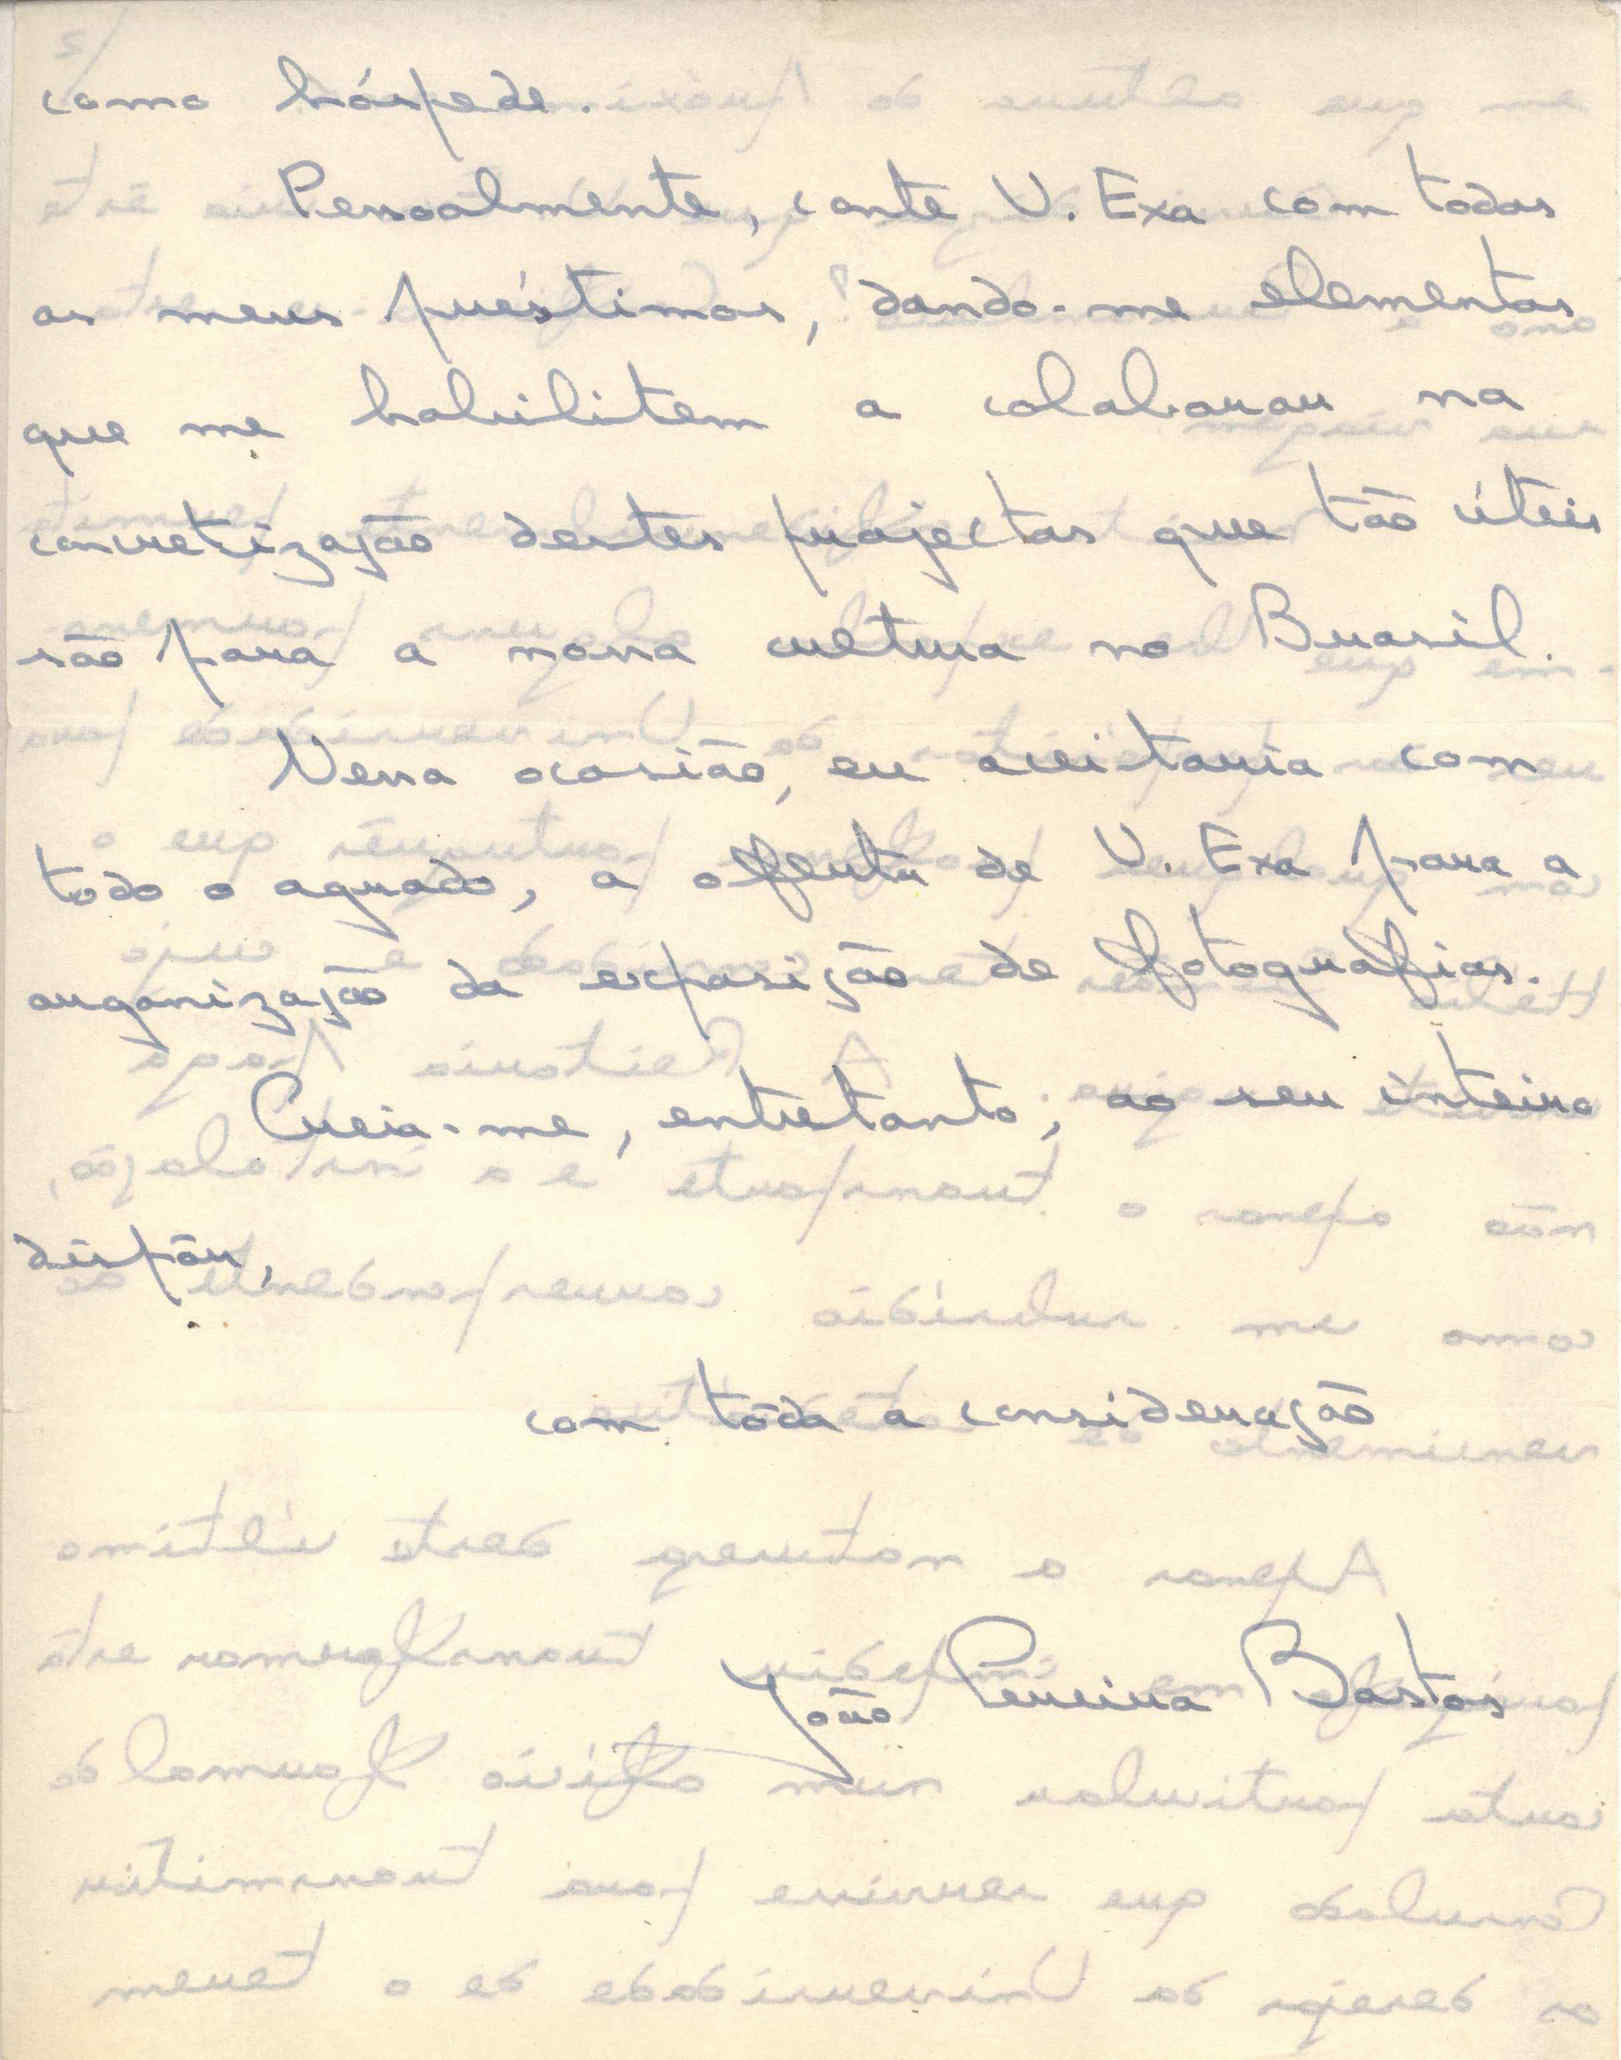 como hóspede.
Pessoalmente, conte V. Exa com todos
os meus préstimos, dando-me elementos
que me habilitem a colaborar na
concretização destes projectos que tão úteis
são para a nossa cultura no Brasil.
Nessa ocasião, eu aceitaria com
todo o agrado, a offerta de V. Exa para a
organização da exposição de fotografias.
Creia-me, entretanto, ao seu inteiro
dispôr,
com tôda a consideração
João Pereira Bastos